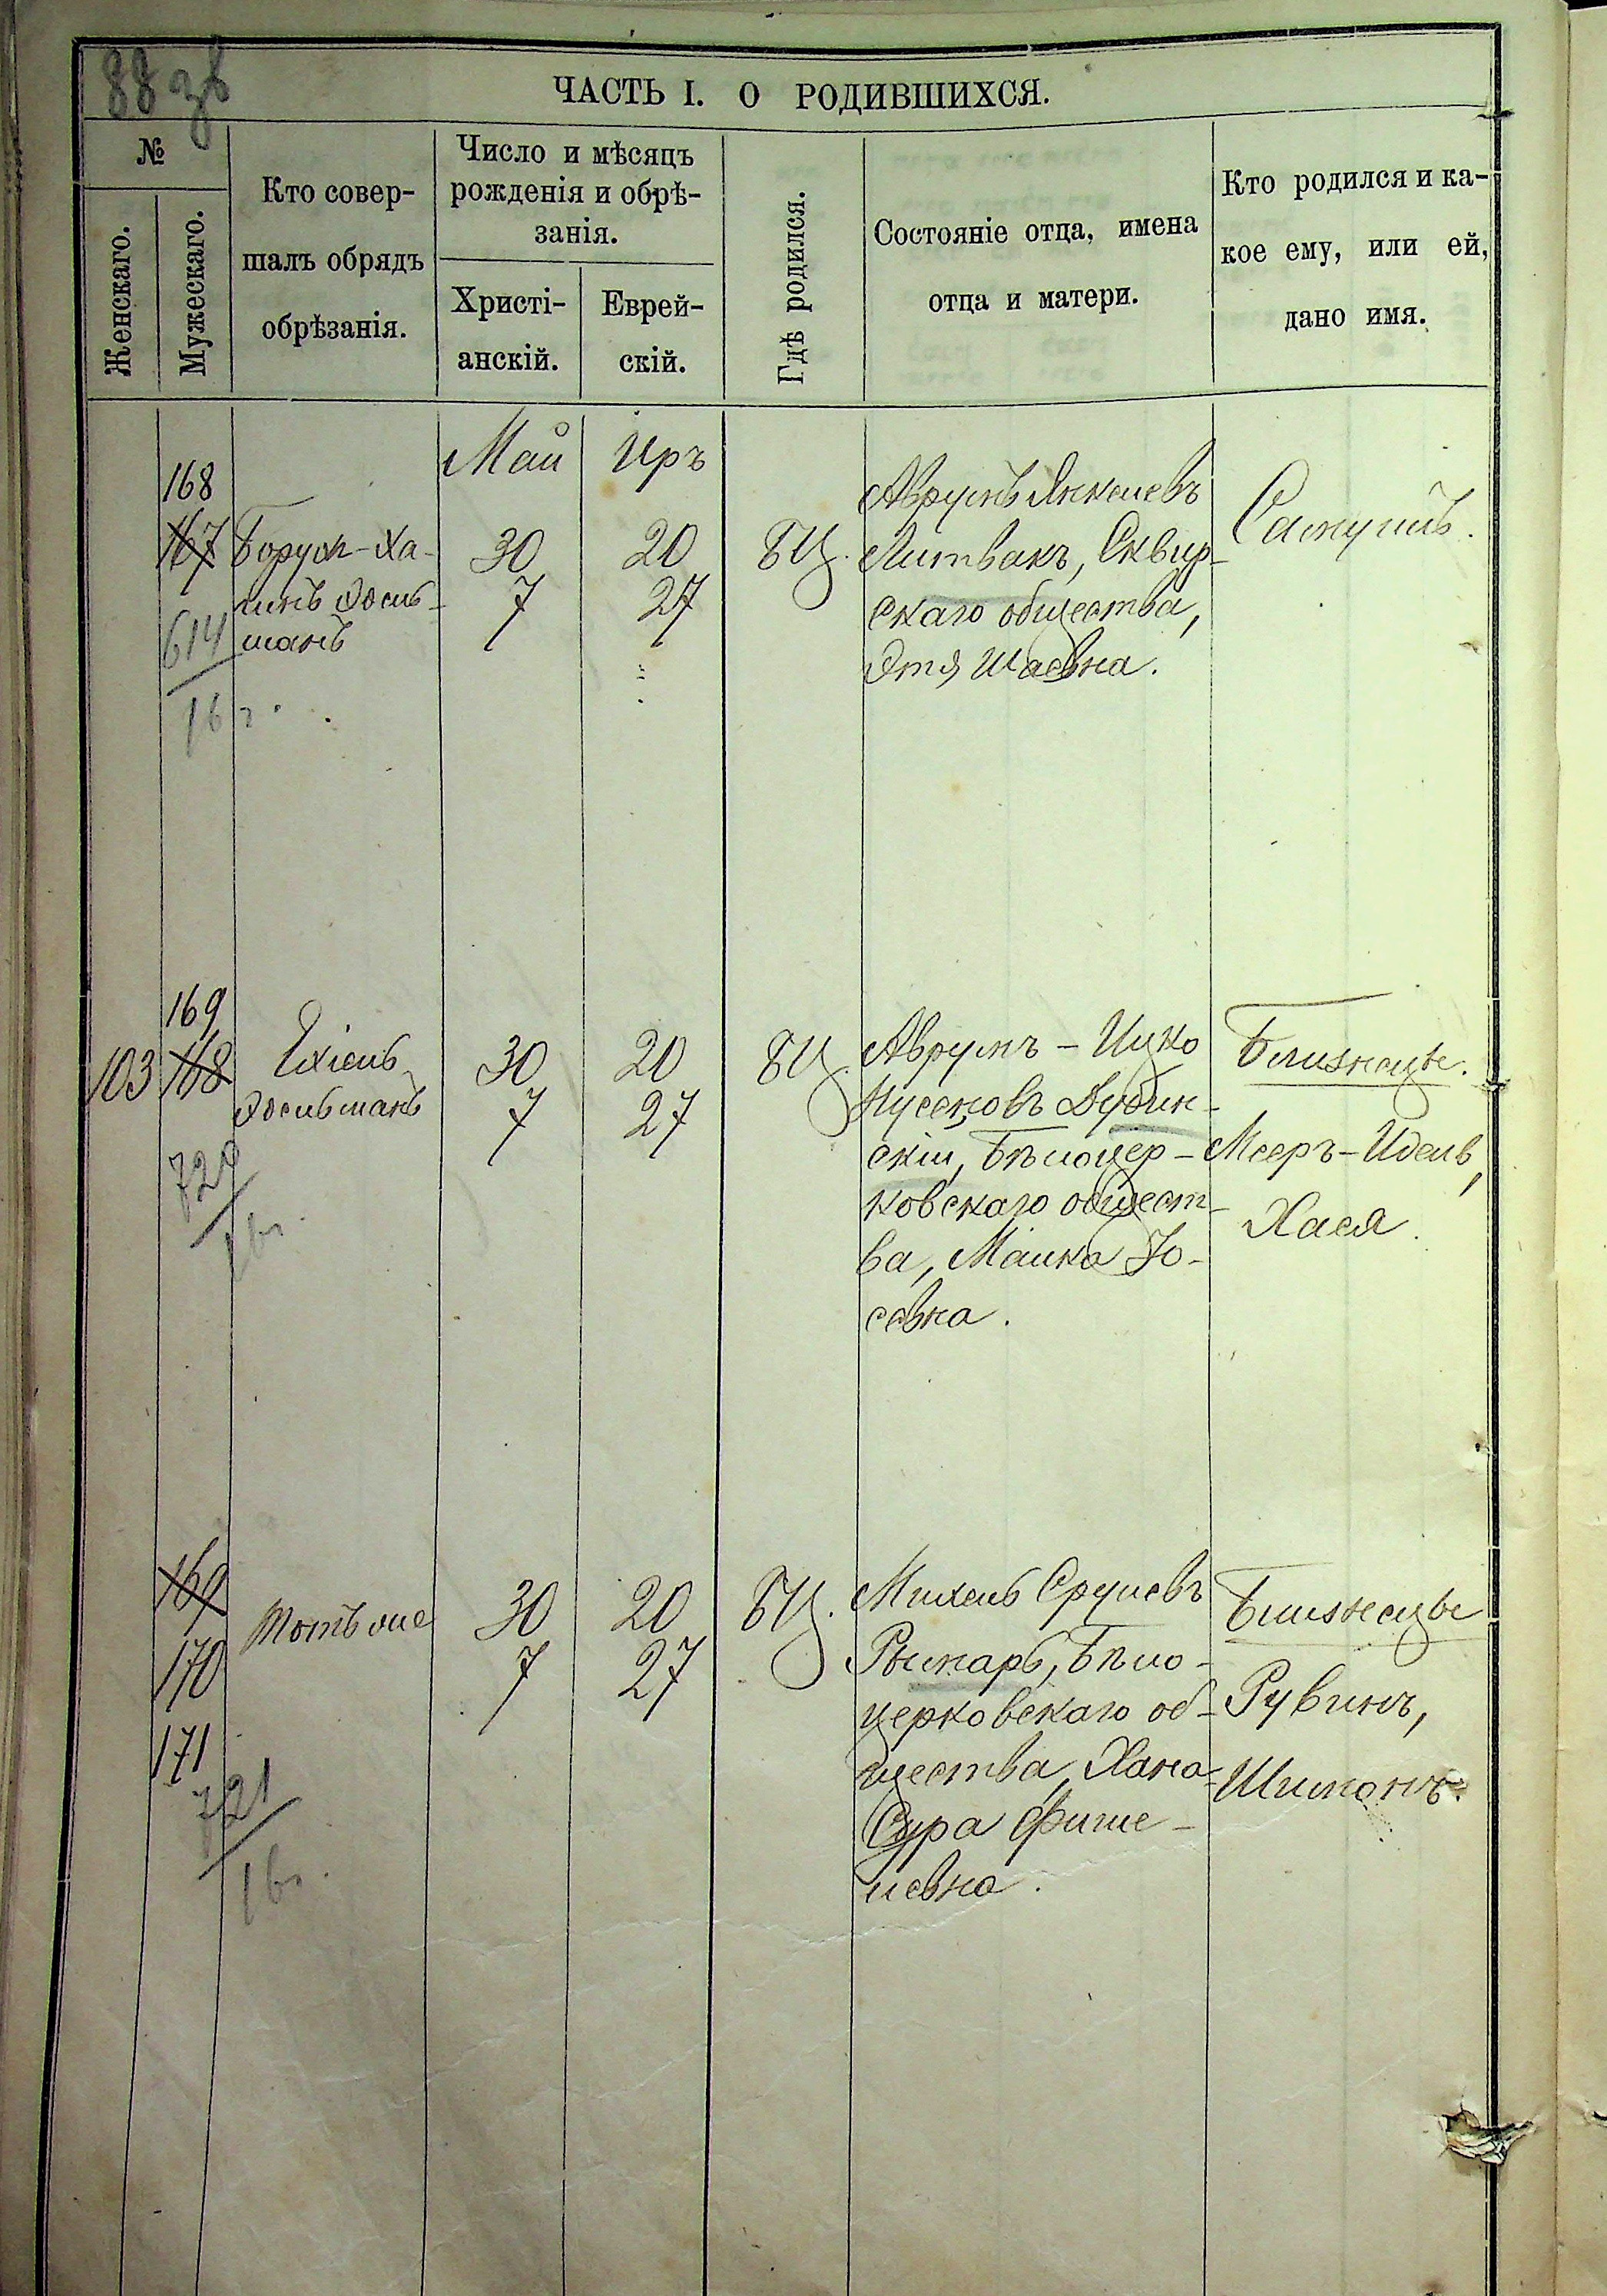 88 зв
ЧАСТЬ I. О РОДИВШИХСЯ.
№
Женскаго.
Мужескаго.
Кто совер-
шалъ обрядъ
обрѣзанія.
Число и мѣсяцъ
рожденія и обрѣ-
занія.
Христі-
анскій.
Еврей-
скій.
Гдѣ родился.
Состояніе отца, имена
отца и матери.
Кто родился и ка-
кое ему, или ей,
дано имя.
Май
Иръ
168
167
614
16 г.
Борух-Ха-
имъ
30
7
20
27
БЦ.
Аврумъ Янкелевъ
Литвакъ, Сквир-
скаго общества,
Этя Шаевна.
Самуилъ.
103
169
168
720
16г.
Ехіель
30
7
20
27
БЦ.
Аврумъ-Ицко
Нусеновъ Дубин-
скій, Бѣлоцер-
ковскаго общест-
ва, Малка Іо-
севна.
Близнецы.
Мееръ-Идель,
Хася.
169
170
171
721
16г.
Тотъ же
30
7
20
27
БЦ.
Михель Срулевъ
Рымарь, Бѣло-
церковскаго об-
щества, Хана-
Сура Фише-
левна.
Близнецы
Рувинъ,
Шимонъ.